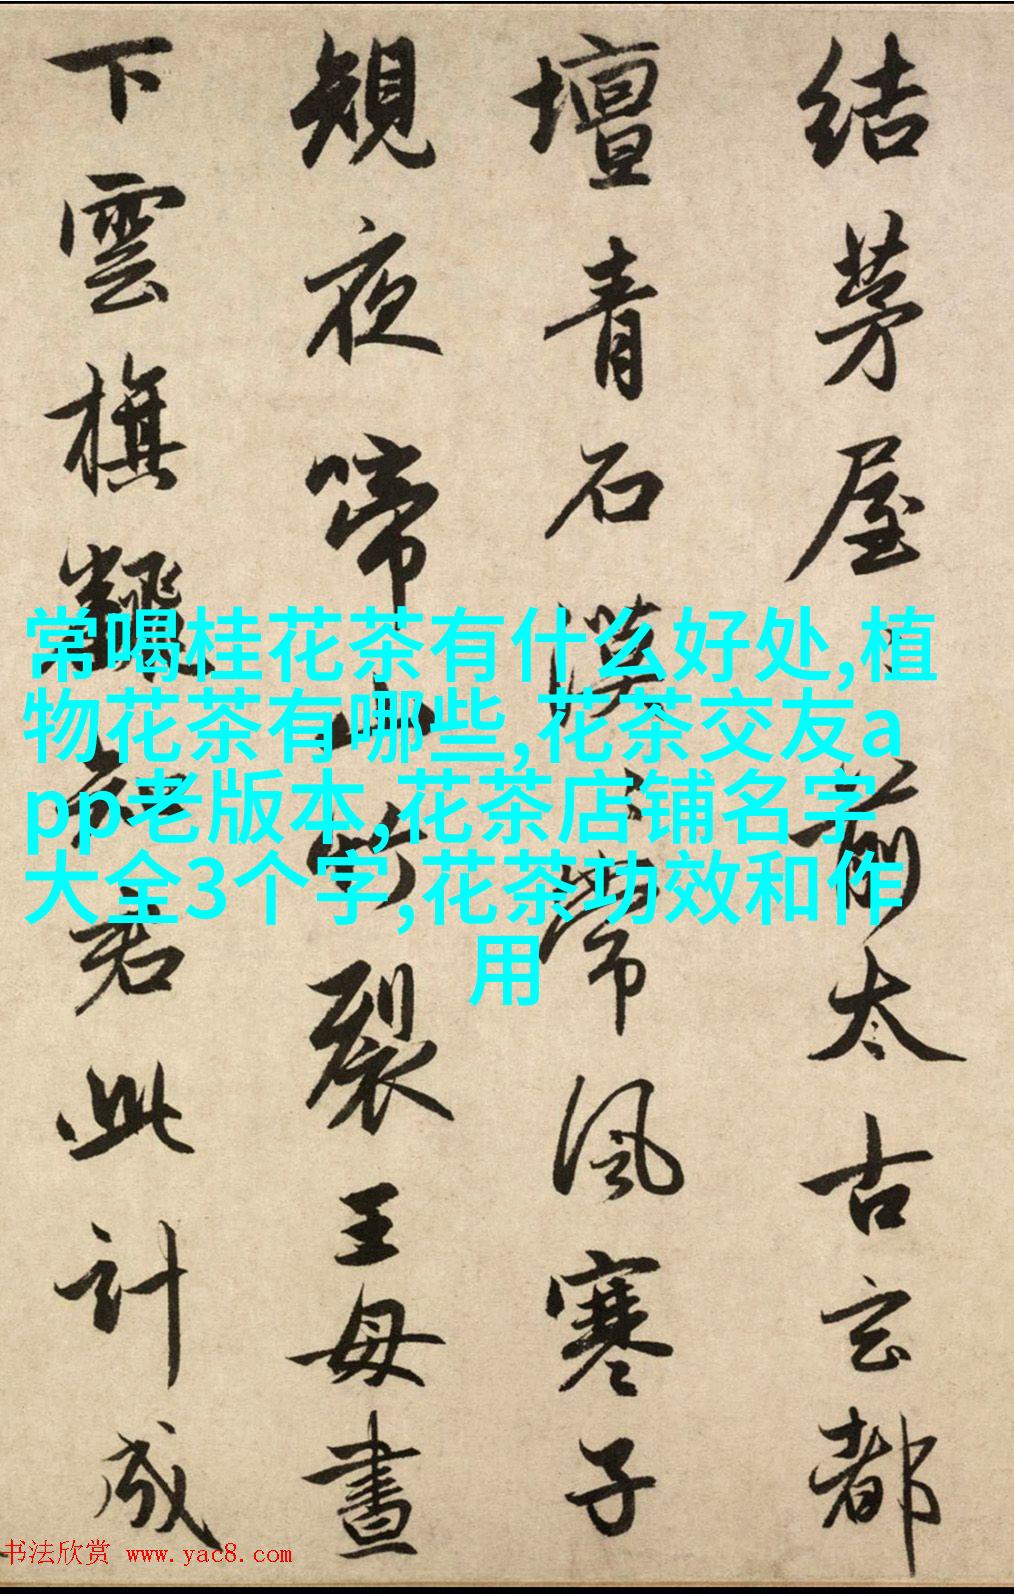 結茅屋〻前太古玄都
壇青石漠〻常風寒子
規夜啼山竹裂王母晝
下雲旗翻知君此計成
常喝桂花茶有什么好处,植
物花茶有哪些,花茶交友a
pp老版本,花茶店铺名字
大全3个字,花茶功效和作
用
书法欣赏 www.yac8.com